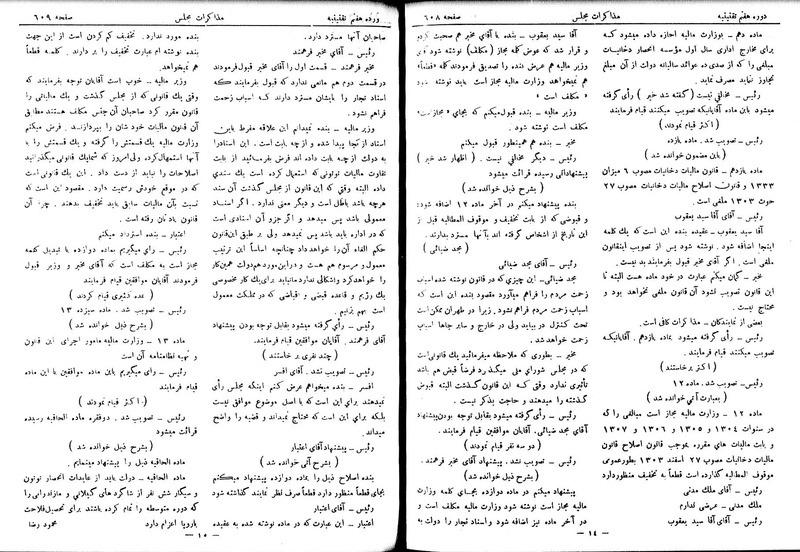 دوره هفتم تقنینیه مذاکرات مجلس صفحه ۶۰۸
ماده دهم - بوزارت مالیه اجازه داده میشود که
برای مخارج اداری سال اول مؤسسه انحصار دخانیات
مبلغی را که از صدی ده عوائد سالیانه دولت از آن مبلغ
تجاوز نباید مصرف نماید.
رئیس - مخالفی نیست (گفته شد خیر) رأی گرفته
میشود باین ماده آقایانیکه تصویب میکنند قیام فرمایند
(اکثر قیام نمودند)
رئیس - تصویب شد. ماده یازده
(باین مضمون خوانده شد)
ماده یازدهم - قانون مالیات دخانیات مصوب ۶ میزان
۱۳۳۳ و قانون اصلاح مالیات دخانیات مصوب ۲۷
حوت ۱۳۰۳ ملغی است.
رئیس - آقای آقا سید یعقوب
آقا سید یعقوب - عقیده بنده این است که یک کلمه
اینجا اضافه شود. نوشته شود پس از تصویب اینقانون
ملغی است. اگر آقای مخبر قبول بفرمایند بد نیست.
مخبر - گمان میکنم عبارت در خود ماده هست البته تا
این قانون تصویب نشود آن قانون ملغی نخواهد بود و
محتاج نیست.
بعضی از نمایندگان - مذاکرات کافی است.
رئیس - رأی گرفته میشود بماده یازدهم. آقایانیکه
تصویب میکنند قیام فرمایند.
(اکثر برخاستند)
رئیس - تصویب شد. ماده ۱۲
(بعبارت آتی خوانده شد)
ماده ۱۲ - وزارت مالیه مجاز است مبالغی را که
در سنوات ۱۳۰۴ و ۱۳۰۵ و ۱۳۰۶ و ۱۳۰۷
و بابت مالیات های مقرره بموجب قانون اصلاح قانون
مالیات دخانیات مصوب ۲۷ اسفند ۱۳۰۳ بطور عمومی
موقوف المطالبه گذارده است قطعاً به تخفیف منظور دارد
رئیس - آقای ملک مدنی
آقای ملک مدنی - عرضی ندارم
رئیس - آقای آقا سید یعقوب
آقا سید یعقوب - بنده با آقای مخبر هم صحبت کردم
و قرار شد که عوض کلمه مجاز (مکلف) نوشته شود آقای
وزیر مالیه هم عرض بنده را تصدیق فرمودند کلمه «قطعاً»
هم نمیخواهد وزارت مالیه مجاز است باید نوشته شود
«مکلف است»
مخبر - بنده قبول میکنم که بجای «مجاز است»
مکلف است نوشته شود.
مخبر - بنده هم همینطور قبول میکنم
رئیس - دیگر مخالفی نیست. (اظهار شد خیر)
پیشنهاد آقای رسیده قرائت میشود
(بشرح ذیل خوانده شد)
بنده پیشنهاد میکنم در آخر ماده ۱۲ اضافه شود:
و قبوضی که از بابت تخفیف و موقوف المطالبه قبل از
این تاریخ از اشخاص گرفته اند بآنها مسترد بدارند.
(مجد ضیائی)
رئیس - آقای مجد ضیائی
مجد ضیائی - این چیزی که در قانون نوشته شده اسباب
زحمت مردم را فراهم میآورد مقصود بنده این است که
اسباب زحمت مردم فراهم نشود. زیرا در طهران ممکن است
تحت کنترل در بیاید ولی در خارج و سایر جاها اسباب
زحمت خواهد شد.
مخبر - بطوری که ملاحظه میفرمائید یک قانونی است
که در مجلس شورای ملی میگذرد فرضاً قبض هم باشد
تأثیری ندارد وقتی که این قانون گذشت البته قبوض
گذشته را میدهند و حاجت بذکر نیست.
رئیس - رأی گرفته میشود بقابل توجه بودن پیشنهاد
آقای مجد ضیائی. آقایان موافقین قیام فرمایند.
(دو سه نفر قیام نمودند)
رئیس - تصویب نشد. پیشنهاد آقای مخبر فرهمند.
(بشرح ذیل خوانده شد)
پیشنهاد میکنم در ماده دوازده بجای کلمه وزارت
مالیه مجاز است نوشته شود وزارت مالیه مکلف است و
در آخر ماده نیز اضافه شود و اسناد تجار را دولت به
— ۱٤ —
دوره هفتم تقنینیه مذاکرات مجلس صفحه ۶۰۹
صاحبان آنها مسترد دارد.
رئیس - آقای مخبر فرهمند
مخبر فرهمند - قسمت اول را آقای مخبر قبول فرمودند
در قسمت دوم هم مانعی ندارد که قبول بفرمایند که
اسناد تجار را بایشان مسترد دارند که اسباب زحمت
فراهم نشود.
وزیر مالیه - بنده نمیدانم این علاقه مفرط باین
اسناد از کجا پیدا شده و از چه بابت است. این اسناد را
به دولت از چه بابت داده اند فرض بفرمائید از بابت
تفاوت مالیات توتونی که استعمال کرده است یک سندی
داده البته وقتی که این قانون از مجلس گذشت آن سند
هرچه باشد باطل است و دیگر معنی ندارد. اگر اسناد
معمولی باشد پس میدهد و اگر جزو آن اسنادی است
که در اداره باید باشد پس نمیدهد ولی بر طبق این قانون
حکم الغاء آن را خواهد داد چنانچه اساساً این ترتیب
معمول و مرسوم هم هست و در این مورد هم دولت همین کار
را خواهد کرد و اشکالی ندارد مانباید برای یک کار مخصوصی
یک رژیم و قاعده قبضی و اقباضی که در تملک معمول
است بهم بزنیم.
رئیس - رأی گرفته میشود بقابل توجه بودن پیشنهاد
آقای فرهمند. آقایان موافقین قیام فرمایند.
(چند نفری برخاستند)
رئیس - تصویب نشد. آقای افسر
افسر - بنده میخواهم عرض کنم اینکه مجلس رأی
نمیدهد برای این است که با اصل موضوع موافق نیست
بلکه برای این است که محتاج نمیداند و قضیه را واضح
میداند.
رئیس - پیشنهاد آقای اعتبار
(بشرح آتی خوانده شد)
بنده اصلاح ذیل را بماده دوازده پیشنهاد میکنم
بجای قطعاً منظور دارد قطعاً صرف نظر نماید گذاشته شود
رئیس - آقای اعتبار
اعتبار - این عبارت که در ماده نوشته شده به عقیده
بنده مورد ندارد. تخفیف کم کردن است از این جهت
بنده نوشته ام عبارت تخفیف را بر دارند. کلمه قطعاً
هم نمیخواهد.
وزیر مالیه - خوب است آقایان توجه بفرمایند که
وقتی یک قانونی که از مجلس گذشت و یک مالیاتی را
قانون مقرر کرد صاحبان آن جنس مکلف هستند مطابق
آن قانون مالیات خودشان را بپردازند. فرض میکنم
وزارت مالیه یک قسمتش را گرفته و یک قسمتش را با
آنها استمهال کرده ولی امروز که شما یک قانونی میگذرانید
اصلاحات را نباید از دست داد. این یک قانونی است
که در موقع خودش رسمیت دارد. مقصود این است که
نسبت بآن مالیات سابق باید تخفیف بدهند. چرا آن
قانون باد مان رفته است.
اعتبار - بنده استرداد میکنم
رئیس - رأی میگیریم بماده دوازده با تبدیل کلمه
مجاز است به مکلف است که آقای مخبر و وزیر قبول
فرمودند آقایان موافقین قیام فرمایند.
(عده کثیری قیام کردند)
رئیس - تصویب شد. ماده سیزده ۱۳
(بشرح ذیل خوانده شد)
ماده ۱۳ - وزارت مالیه مأمور اجرای این قانون
و تهیه نظامنامه آن است
رئیس - رأی میگیریم باین ماده موافقین با این ماده
قیام فرمایند
(اکثر قیام نمودند)
رئیس - تصویب شد. دو فقره ماده الحاقیه رسیده
قرائت میشود
(بشرح ذیل خوانده شد)
ماده الحاقیه ذیل را پیشنهاد مینمایم.
ماده الحاقیه - دولت باید از عایدات انحصار توتون
و سیگار شش نفر از شاگرد های گیلانی و مازندرانی را
که دوره متوسطه را تمام کرده باشند برای تحصیل فلاحت
باروپا اعزام دارد محمود رضا
— ۱۵ —